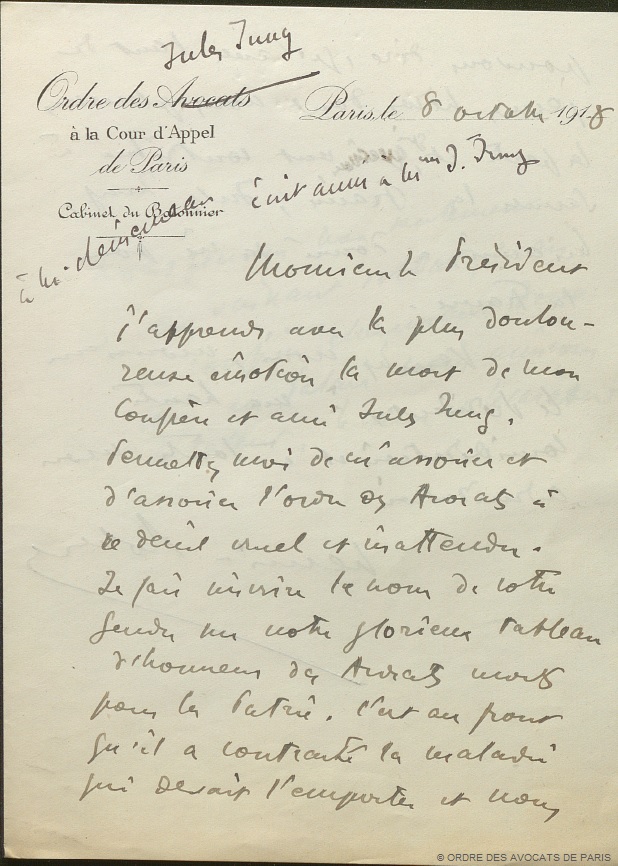 Jules Jung
Ordre des Avocats
à la Cour d'Appel
de Paris
Cabinet du Bâtonnier
Paris, le 8 octobre 1918
écrit aussi à Mme J. Jung
à M.
Monsieur le Président
J'apprends avec la plus doulou-
reuse émotion la mort de mon
Confrère et ami Jules Jung.
Permettez moi de m'associer et
d'associer l'ordre des Avocats à
ce deuil cruel et inattendu.
Je fais inscrire le nom de votre
gendre sur notre glorieux tableau
d'honneur des Avocats morts
pour la Patrie. C'est au front
qu'il a contracté la maladie
qui devait l'emporter et nous
© ORDRE DES AVOCATS DE PARIS